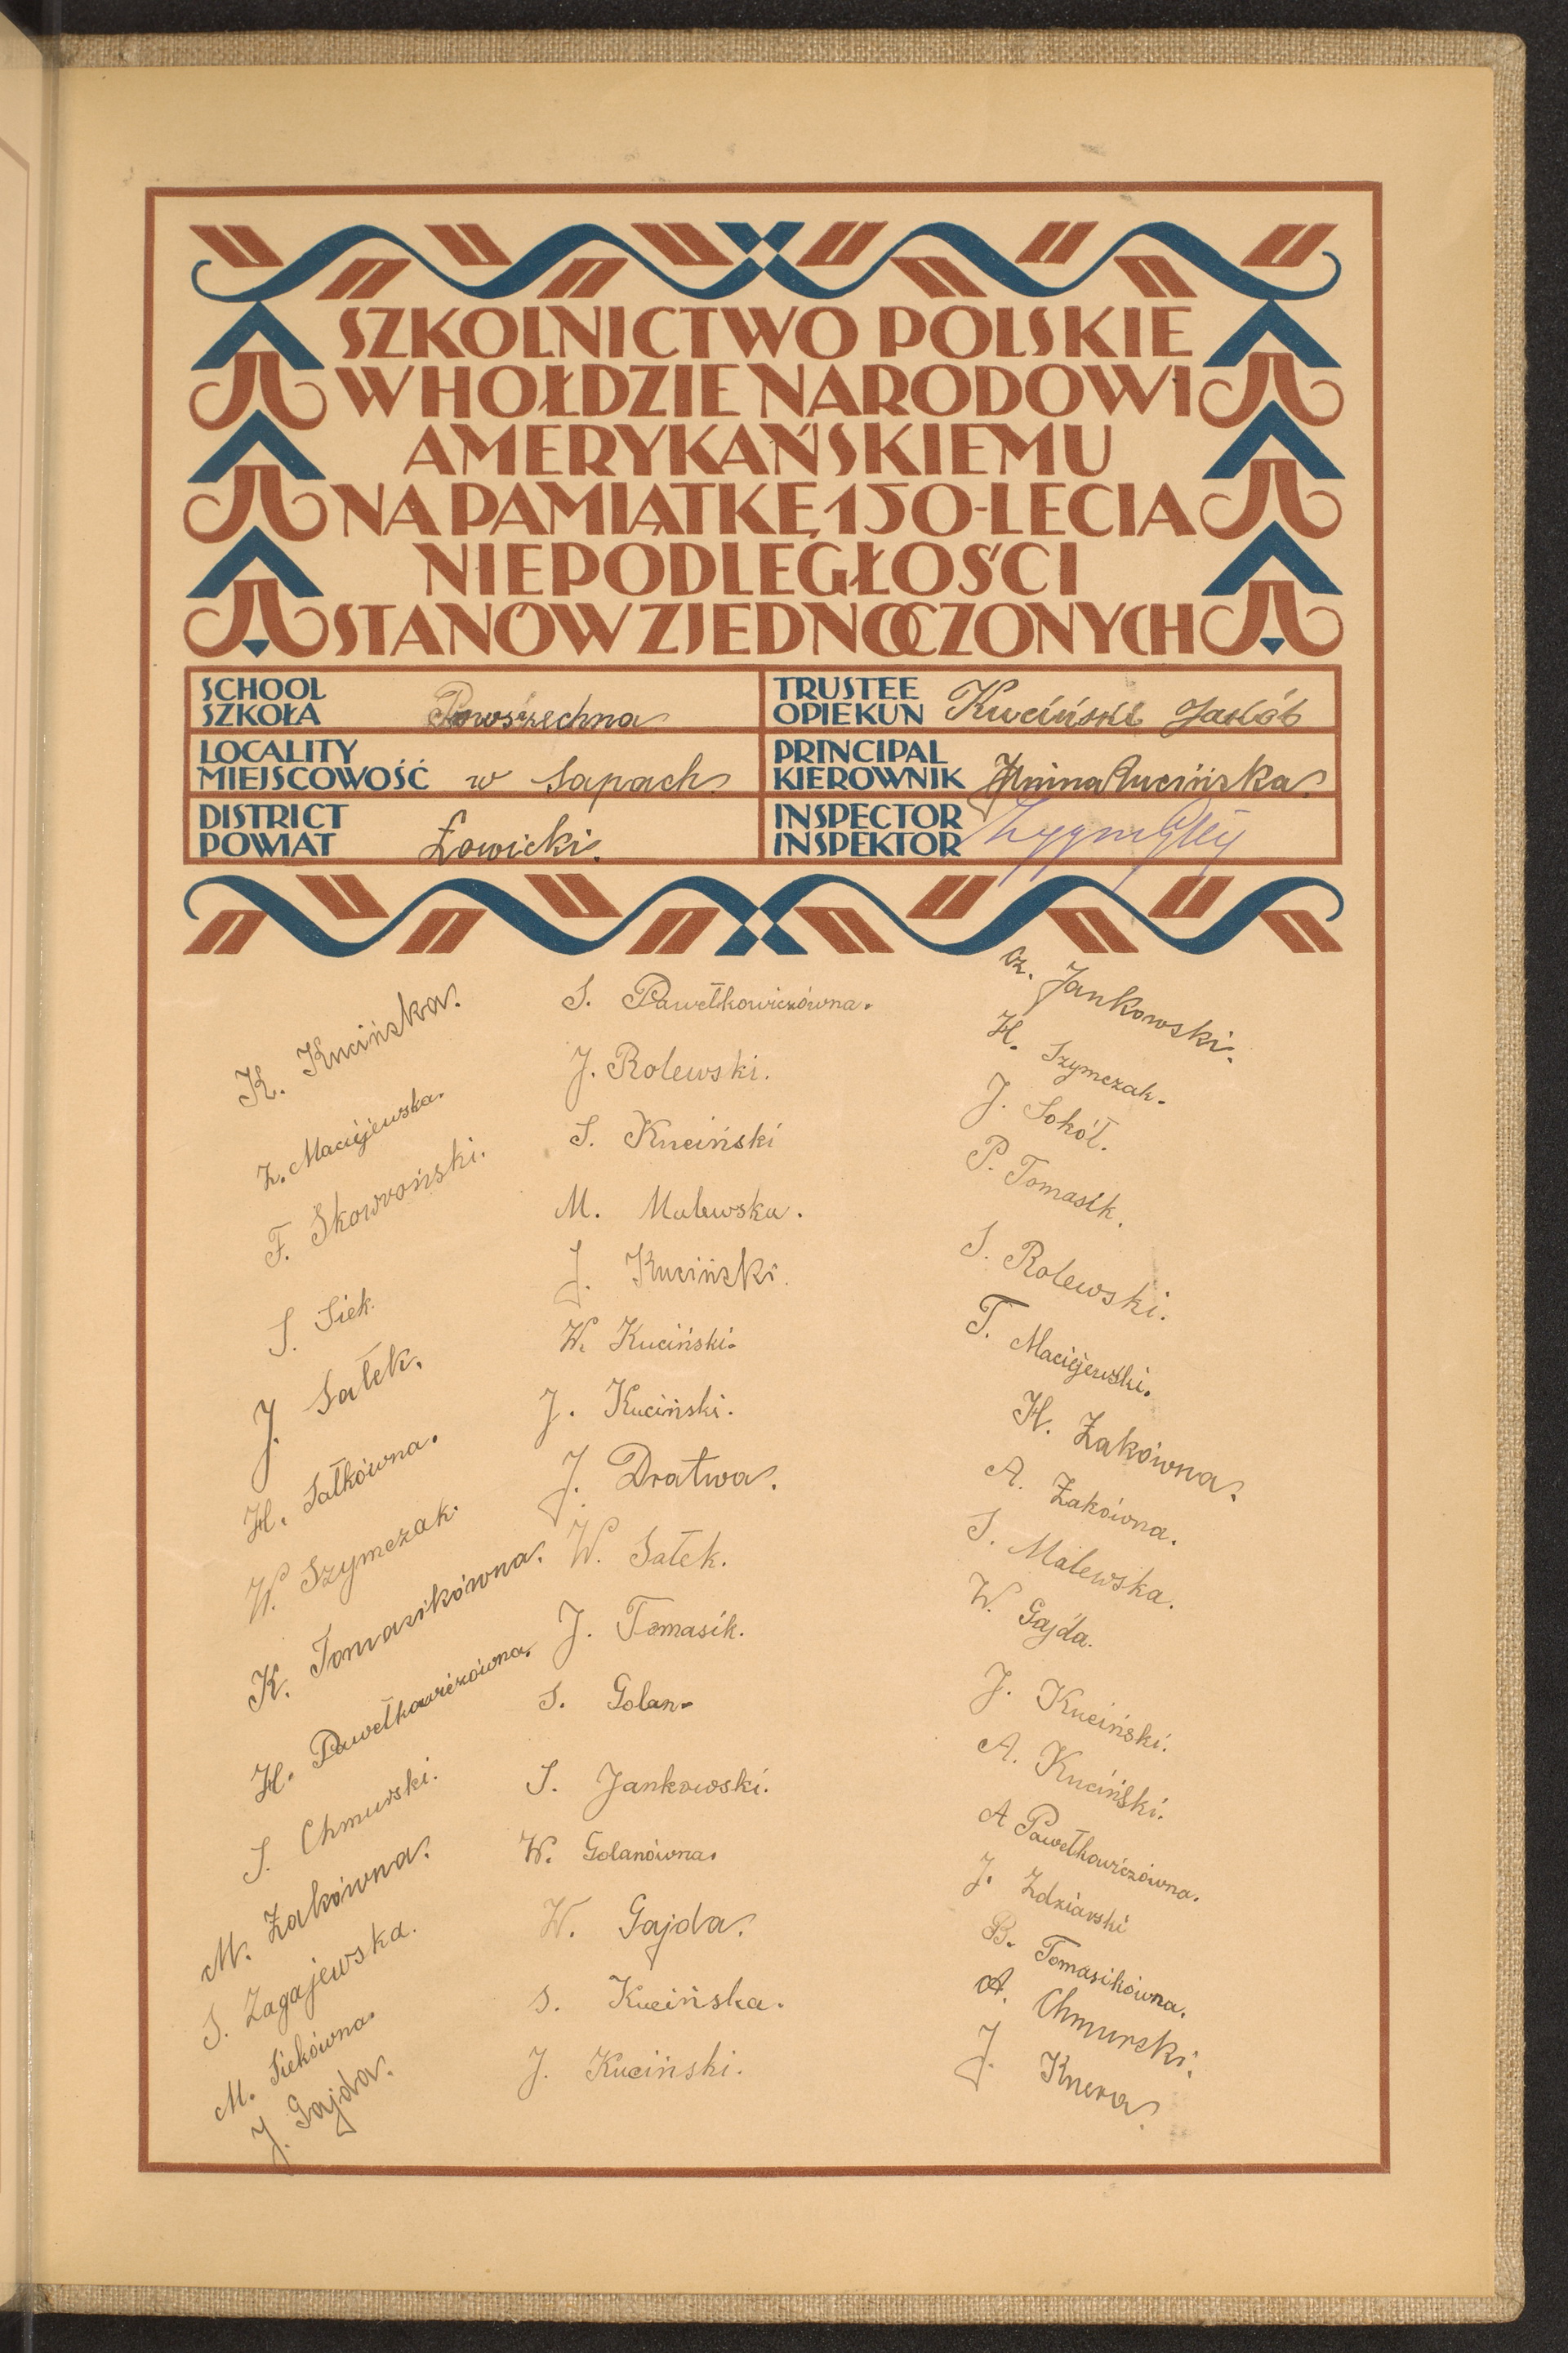 SZKOLNICTWO POLSKIE
W HOŁDZIE NARODOWI
AMERYKAŃSKIEMU
NA PAMIĄTKĘ 150-LECIA
NIEPODLEGŁOŚCI
STANÓW ZJEDNOCZONYCH
SCHOOL
SZKOŁA Powszechna
TRUSTEE
OPIEKUN Kuciński Jakób
LOCALITY
MIEJSCOWOŚĆ w Sapach
PRINCIPAL
KIEROWNIK Janina Kucińska
DISTRICT
POWIAT Łowicki.
INSPECTOR
INSPEKTOR
K. Kucińska.
Z. Maciejewska.
F. Skowroński.
S. Siek.
J. Sałek.
H. Sałkówna.
W. Szymczak.
K. Tomasikówna.
H. Pawełkowiczówna.
S. Chmurski.
M. Żakówna.
S. Zagajewska.
M. Siekówna.
J. Gajda.
S. Pawełkowiczówna.
J. Rolewski.
S. Kuciński
M. Malewska.
J. Kuciński.
W. Kuciński.
J. Kuciński.
J. Dratwa.
W. Sałek.
J. Tomasik.
S. Golan.
S. Jankowski.
W. Golanówna.
W. Gajda.
S. Kucińska.
J. Kuciński.
Cz. Jankowski.
H. Szymczak.
J. Sokół.
P. Tomasik.
S. Rolewski.
T. Maciejewski.
H. Żakówna.
A. Żakówna.
S. Malewska.
W. Gajda.
J. Kuciński.
A. Kuciński.
A Pawełkowiczówna.
J. Zdziarski
B. Tomasikówna.
A. Chmurski.
J. Knera.